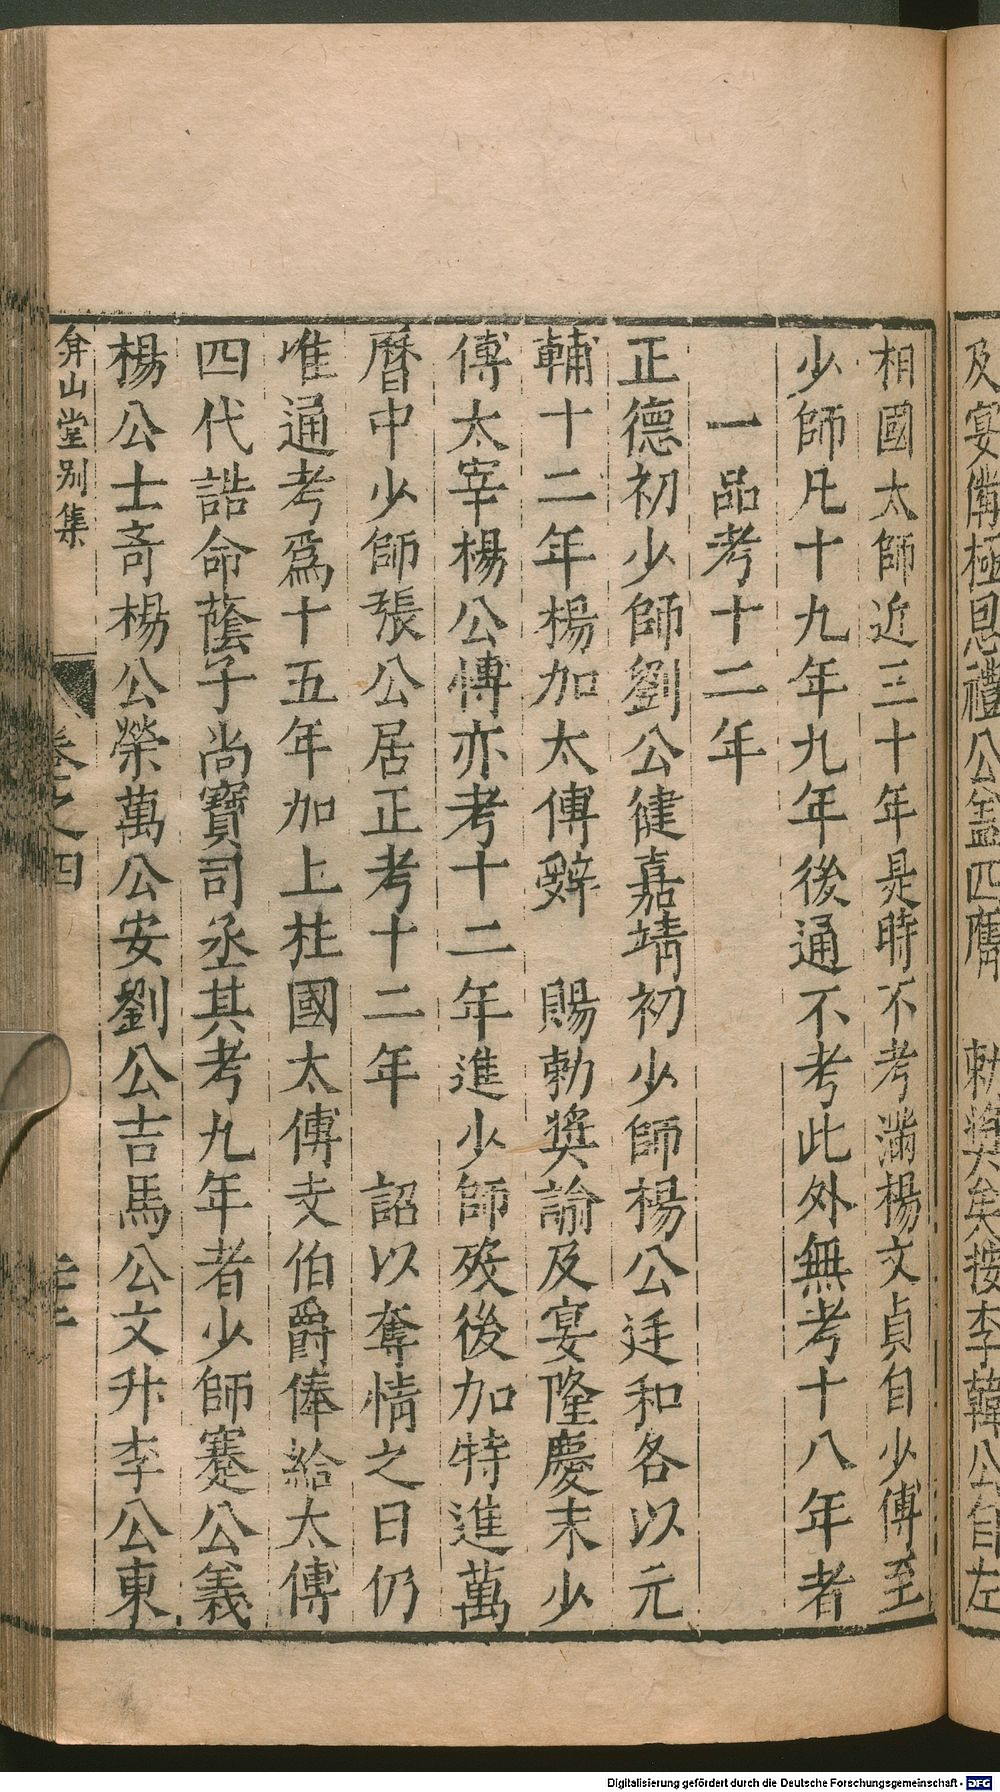 及宴備極恩禮公孟四膺　勅獎矣按李韓公自左
相國太師近三十年是時不考滿楊文貞自少傅至
少師凡十九年九年後通不考此外無考十八年者
一品考十二年
正德初少師劉公健嘉靖初少師楊公廷和各以元
輔十二年楊加太傅辭　賜勅奬諭及宴隆慶末少
傅太宰楊公博亦考十二年進少師歿後加特進萬
曆中少師張公居正考十二年　詔以奪情之日仍
唯通考爲十五年加上柱國太傅支伯爵俸給太傅
四代誥命蔭子尚寶司丞其考九年者少師蹇公義
楊公士奇楊公榮萬公安劉公吉馬公文升李公東
弇山堂别集　卷之四
Digitalisierung gefördert durch die Deutsche Forschungsgemeinschaft - DFG